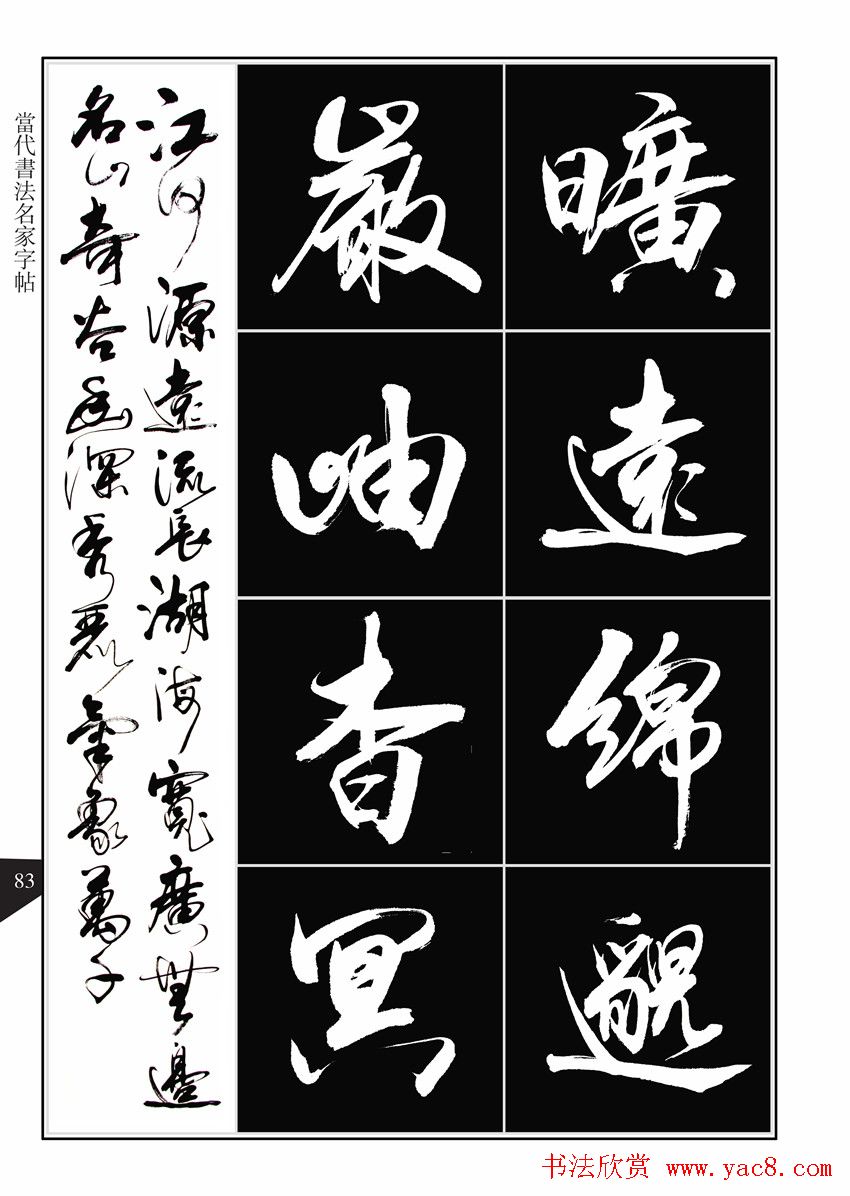 曠遠綿邈
巖岫杳冥
江河源遠流長湖海寬廣無邊
名山奇谷幽深秀麗氣象萬千
當代書法名家字帖
83
书法欣赏 www.yac8.com